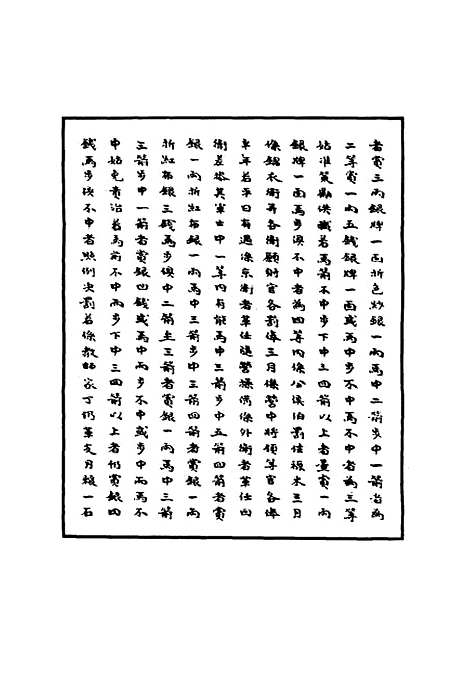 者賞三兩銀牌一面折色炒銀一兩馬中二箭步中一箭者為
二等賞一兩五錢銀牌一面或馬中步不中馬不中者為三等
姑准策勵供職若馬箭不中步下中三四箭以上者量賞一兩
銀牌一面馬步俱不中者為四等內係公侯伯罰住祿米三月
係錦衣衛並各衛願財官各罰俸三月係營中將領等官各俸
半年若平日有過係京衛者革任隨營操備係外衛者革任回
衛差操其軍士中一等內有能馬中三箭步中五箭四箭者賞
銀一兩折紅布銀一兩馬中三箭步中三箭四箭者賞銀一兩
折紅布銀三錢馬步俱中二箭至三箭者賞銀一兩馬中三箭
三箭步中一箭者賞銀四錢或馬中而步不中或步中而馬不
中姑免責治若馬前不中而步下中三四箭以上者仍賞銀四
錢馬步俱不中者照例決罰若係教師家丁仍革支月糧一石